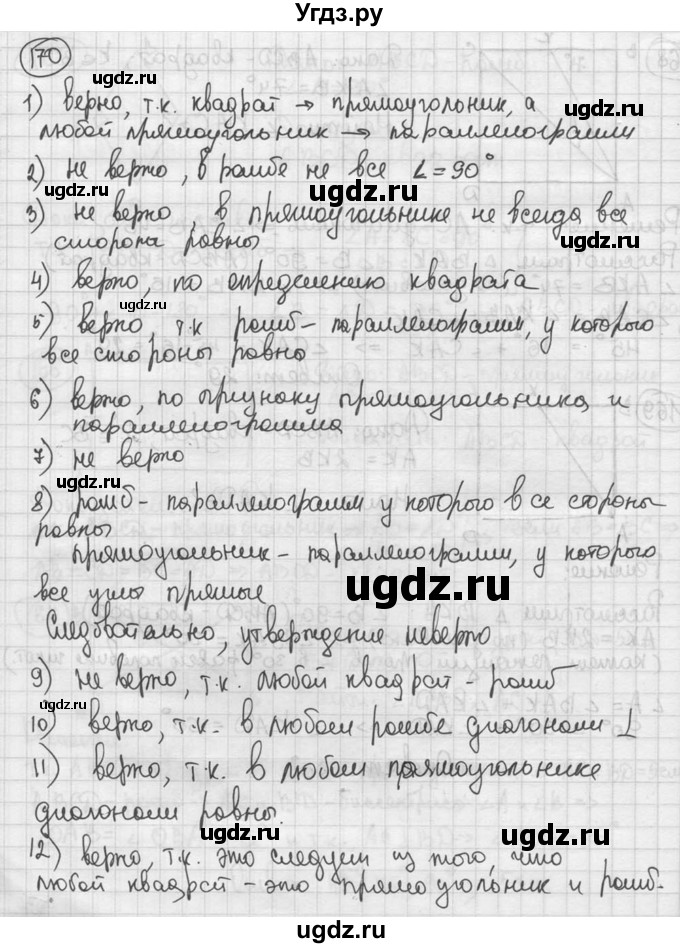 Угдз.ру
170
1) верно, т.к. квадрат → прямоугольник, а
любой прямоугольник → параллелограмм
2) не верно, в ромбе не все ∠=90°
3) не верно, в прямоугольнике не всегда все
стороны равны
4) верно, по определению квадрата
5) верно, т.к ромб- параллелограмм, у которого
все стороны равно
6) верно, по признаку прямоугольника и
параллелограмма
7) не верно
8) ромб- параллелограмм у которого все стороны
равны
прямоугольник- параллелограмм, у которого
все углы прямые
Следовательно, утверждение неверно
9) не верно, т.к. любой квадрат - ромб
10) верно, т.к. в любом ромбе диагонали ⊥
11) верно, т.к. в любом прямоугольнике
диагонали равны.
12) верно, т.к. это следует из того, что
любой квадрат - это прямоугольник и ромб.
ugdz.ru
ugdz.ru
ugdz.ru
ugdz.ru
ugdz.ru
ugdz.ru
ugdz.ru
ugdz.ru
ugdz.ru
ugdz.ru
ugdz.ru
ugdz.ru
ugdz.ru
ugdz.ru
Угдз.ру